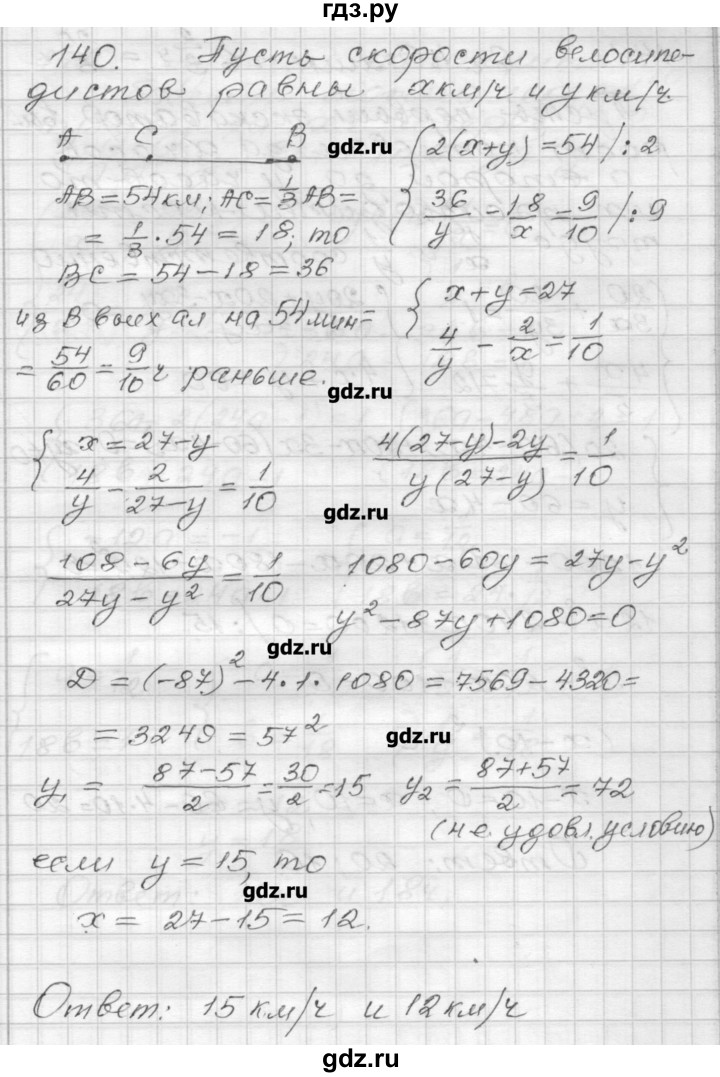 гдз.ру
140. Пусть скорости велосипе-
дистов равны x км/ч и y км/ч.
A C B
gdz.ru
{ 2(x+y) = 54 /: 2
36/y − 18/x = 9/10 /: 9
AB = 54 км; AC = 1/3 AB =
= 1/3 · 54 = 18; то
BC = 54 − 18 = 36
из B выехал на 54 мин =
= 54/60 = 9/10 ч раньше.
{ x + y = 27
4/y − 2/x = 1/10
gdz.ru
{ x = 27 − y
4/y − 2/(27−y) = 1/10
(4(27−y)−2y)/(y(27−y)) = 1/10
gdz.ru
(108 − 6y)/(27y − y²) = 1/10
1080 − 60y = 27y − y²
y² − 87y + 1080 = 0
gdz.ru
D = (−87)² − 4·1·1080 = 7569 − 4320 =
= 3249 = 57²
gdz.ru
y₁ = (87−57)/2 = 30/2 = 15 y₂ = (87+57)/2 = 72
(не удовл. условию)
если y = 15, то
gdz.ru
x = 27 − 15 = 12.
Ответ: 15 км/ч и 12 км/ч
gdz.ru